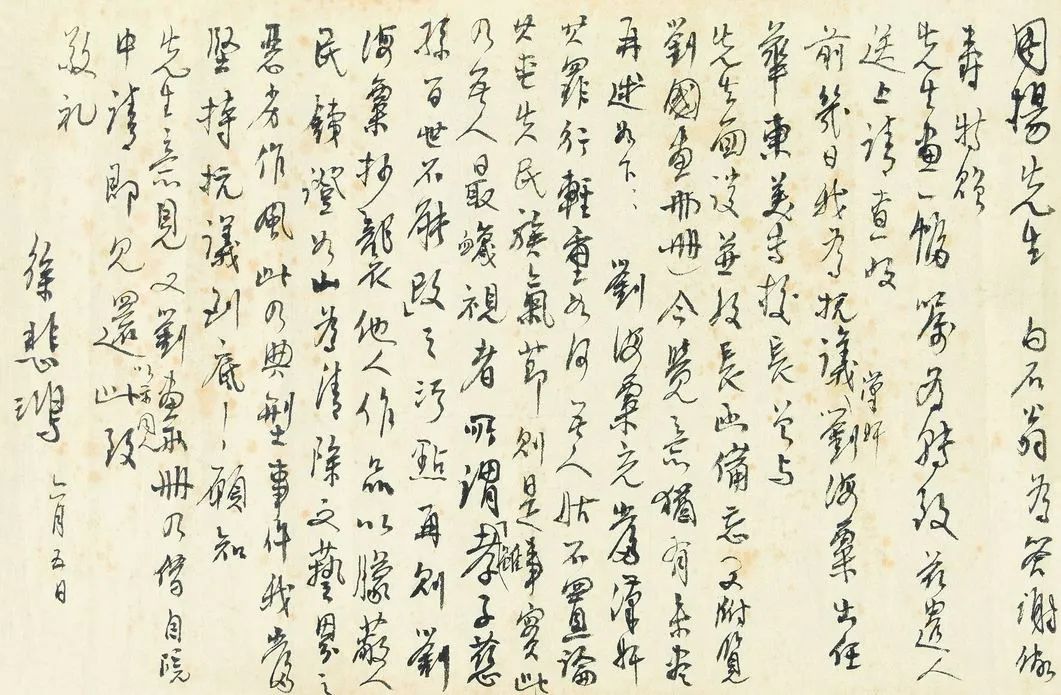 周揚先生 白石翁為答謝你
壽 特贈
先生畫一幅囑為轉致茲遣人
送上請查收
前幾日我為抗議漢奸劉海粟出任
華東美專校長曾與
先生面談並致長函備忘(又附覽
劉國畫冊一冊)今覺意猶有未盡
再述如下： 劉海粟充當漢奸
其罪行輕重如何吾人姑不置論
其喪失民族氣節則是事實此
乃吾人最蔑視者所謂「雖孝子慈
孫百世不能改」之污點再則劉
海粟抄襲他人作品以矇蔽人
民 鐵證如山為清除文藝界之
惡劣作風此乃典型事件我當
堅持抗議到底，願知
先生意見又劉畫冊乃借自院
中請即見還 此致
敬礼
徐悲鴻 六月五日